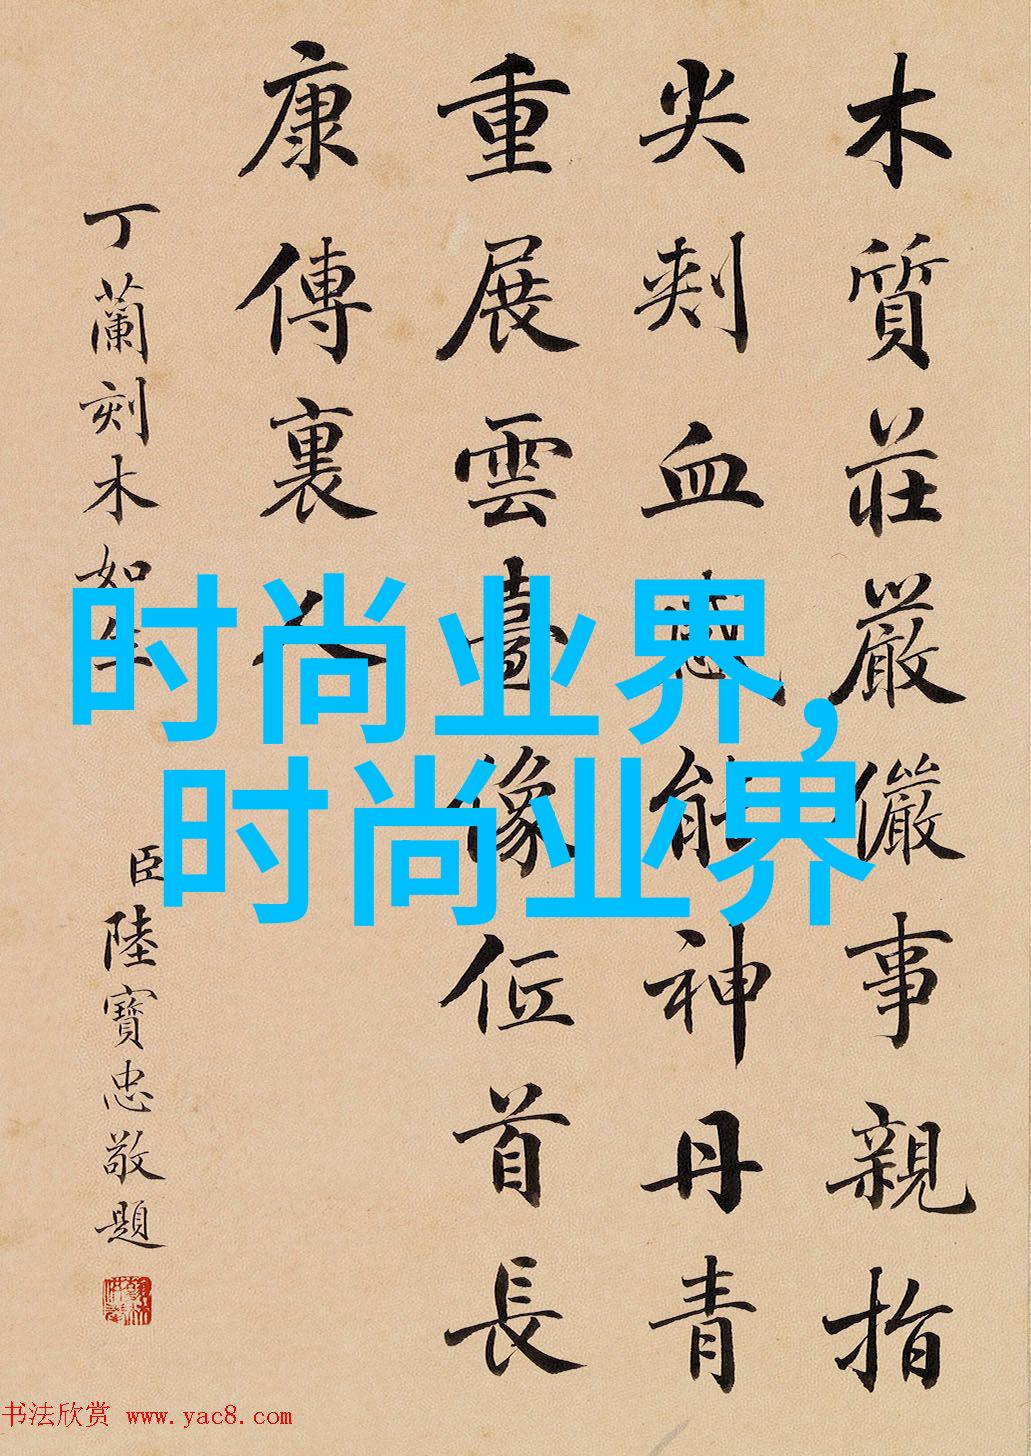 木質莊嚴儼事親指
尖刾血感能神丹青
重展雲臺像位首長
康傳裏人
丁蘭刻木如生
臣陸寶忠敬題
时尚业界,
时尚业界
书法欣赏 www.yac8.com